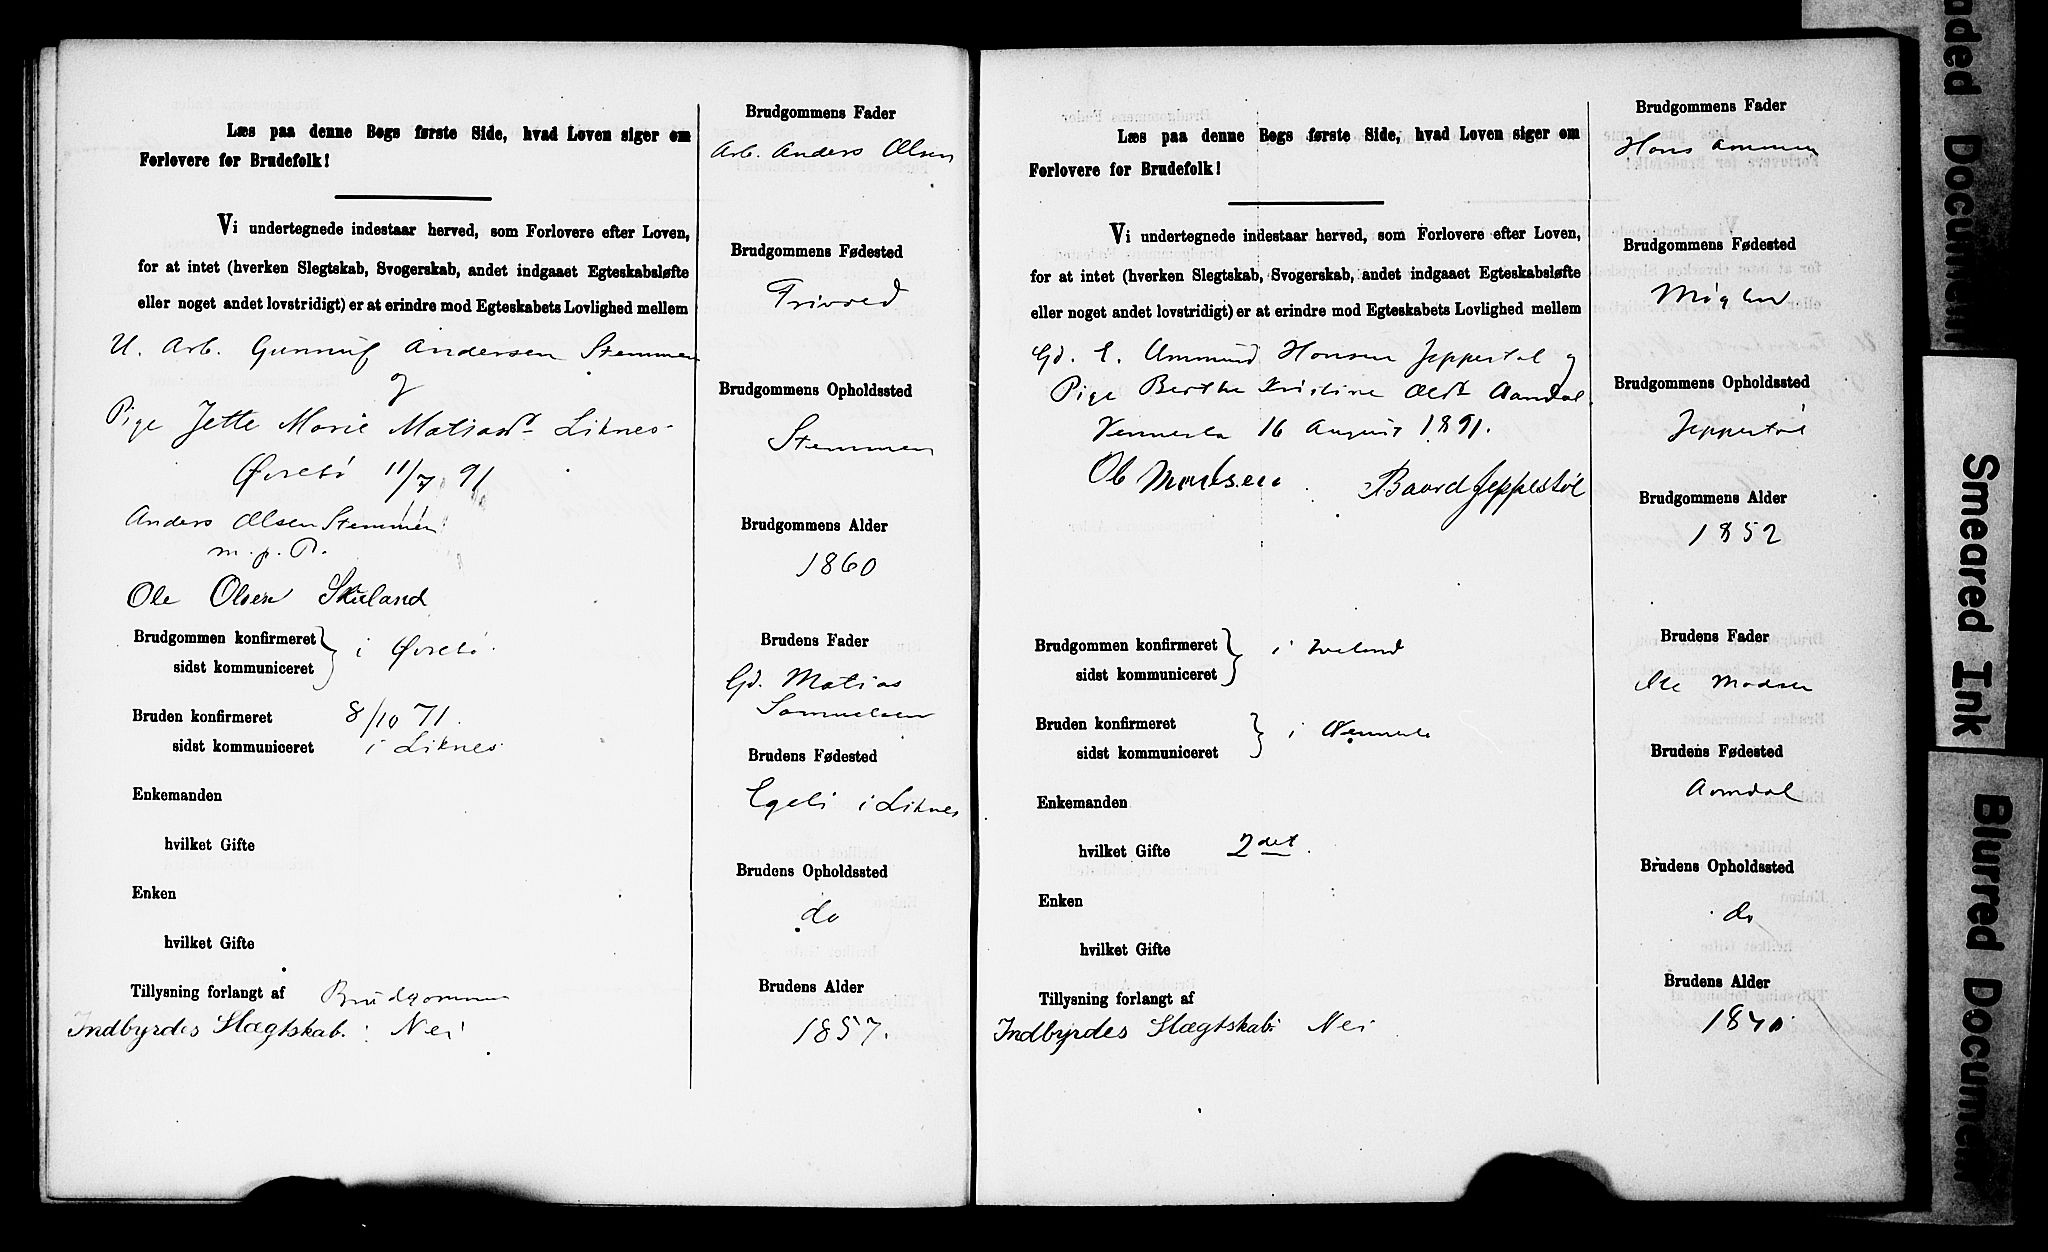 Læs paa denne Bogs første Side, hvad Loven siger om
Forlovere for Brudefolk!
Vi undertegnede indestaar herved, som Forlovere efter Loven,
for at intet (hverken Slegtskab, Svogerskab, andet indgaaet Egteskabsløfte
eller noget andet lovstridigt) er at erindre mod Egteskabets Lovlighed mellem
U. Arb. Gunnuf Andersen Stemmen
og
Pige Jette Marie Matiasd. Liknes
Øvrebø 11/7 91
Anders Olsen Stemmen
m. p. P.
Ole Olsen Skuland
Brudgommen konfirmeret
sidst kommuniceret } i Øvrebø.
Bruden konfirmeret 8/10 71.
sidst kommuniceret i Liknes
Enkemanden
hvilket Gifte
Enken
hvilket Gifte
Tillysning forlangt af Brudgommen
Indbyrdes Slægtskab: Nei
Brudgommens Fader
Arb. Anders Olsen
Brudgommens Fødested
Brudgommens Opholdssted
Stemmen
Brudgommens Alder
1860
Brudens Fader
Gd. Matias
Samuelsen
Brudens Fødested
Egeli i Liknes
Brudens Opholdssted
do
Brudens Alder
1857.
Læs paa denne Bogs første Side, hvad Loven siger om
Forlovere for Brudefolk!
Vi undertegnede indestaar herved, som Forlovere efter Loven,
for at intet (hverken Slegtskab, Svogerskab, andet indgaaet Egteskabsløfte
eller noget andet lovstridigt) er at erindre mod Egteskabets Lovlighed mellem
Gd. E. Ammund Hansen Jeppestøl og
Pige Berthe Kristine Olsd. Aamdal.
Vennesla 16 August 1891.
Ole Madsen Baard Jeppestøl
Brudgommen konfirmeret
sidst kommuniceret } i Iveland
Bruden konfirmeret
sidst kommuniceret } i Vennesla
Enkemanden
hvilket Gifte 2det.
Enken
hvilket Gifte
Tillysning forlangt af
Indbyrdes Slægtskab: Nei
Brudgommens Fader
Hans Ammunsen
Brudgommens Fødested
Brudgommens Opholdssted
Jeppestøl
Brudgommens Alder
1852
Brudens Fader
Ole Madsen
Brudens Fødested
Aamdal
Brudens Opholdssted
do
Brudens Alder
Document
Smeared Ink
Blurred Document